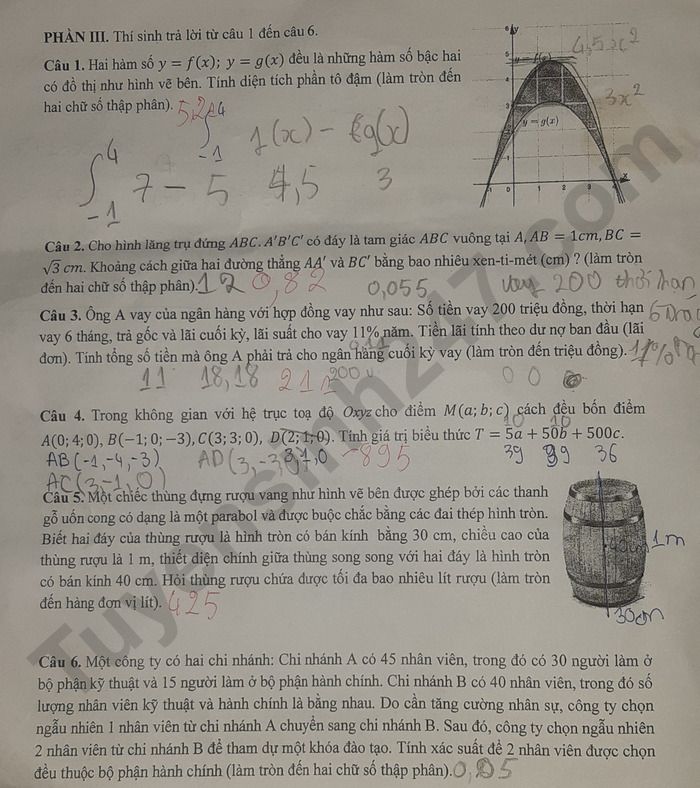 PHẦN III. Thí sinh trả lời từ câu 1 đến câu 6.
Câu 1. Hai hàm số y = f(x); y = g(x) đều là những hàm số bậc hai
có đồ thị như hình vẽ bên. Tính diện tích phần tô đậm (làm tròn đến
hai chữ số thập phân). 52
4,5x²
3x²
y = g(x)
∫ 4 -1 f(x) - g(x)
∫ 4 -1 7 - 5 4,5 3
Câu 2. Cho hình lăng trụ đứng ABC.A'B'C' có đáy là tam giác ABC vuông tại A, AB = 1cm, BC =
√3 cm. Khoảng cách giữa hai đường thẳng AA' và BC' bằng bao nhiêu xen-ti-mét (cm) ? (làm tròn
đến hai chữ số thập phân). 12 0,82 0,055 vay 200 thời hạn
Câu 3. Ông A vay của ngân hàng với hợp đồng vay như sau: Số tiền vay 200 triệu đồng, thời hạn
vay 6 tháng, trả gốc và lãi cuối kỳ, lãi suất cho vay 11% năm. Tiền lãi tính theo dư nợ ban đầu (lãi
đơn). Tính tổng số tiền mà ông A phải trả cho ngân hàng cuối kỳ vay (làm tròn đến triệu đồng).
11 18,18 211 200
Câu 4. Trong không gian với hệ trục toạ độ Oxyz cho điểm M(a; b; c) cách đều bốn điểm
A(0; 4; 0), B(−1; 0; −3), C(3; 3; 0), D(2; 1; 0). Tính giá trị biểu thức T = 5a + 50b + 500c.
AB(-1,-4,-3) AD(3,-3,0) 3,1,0 -895 39 39 36
AC(3,-1,0)
Câu 5. Một chiếc thùng đựng rượu vang như hình vẽ bên được ghép bởi các thanh
gỗ uốn cong có dạng là một parabol và được buộc chắc bằng các đai thép hình tròn.
Biết hai đáy của thùng rượu là hình tròn có bán kính bằng 30 cm, chiều cao của
thùng rượu là 1 m, thiết diện chính giữa thùng song song với hai đáy là hình tròn
có bán kính 40 cm. Hỏi thùng rượu chứa được tối đa bao nhiêu lít rượu (làm tròn
đến hàng đơn vị lít). 425
40cm 1m
30cm
Câu 6. Một công ty có hai chi nhánh: Chi nhánh A có 45 nhân viên, trong đó có 30 người làm ở
bộ phận kỹ thuật và 15 người làm ở bộ phận hành chính. Chi nhánh B có 40 nhân viên, trong đó số
lượng nhân viên kỹ thuật và hành chính là bằng nhau. Do cần tăng cường nhân sự, công ty chọn
ngẫu nhiên 1 nhân viên từ chi nhánh A chuyển sang chi nhánh B. Sau đó, công ty chọn ngẫu nhiên
2 nhân viên từ chi nhánh B để tham dự một khóa đào tạo. Tính xác suất để 2 nhân viên được chọn
đều thuộc bộ phận hành chính (làm tròn đến hai chữ số thập phân). 0,05
Tuyensinh247.com